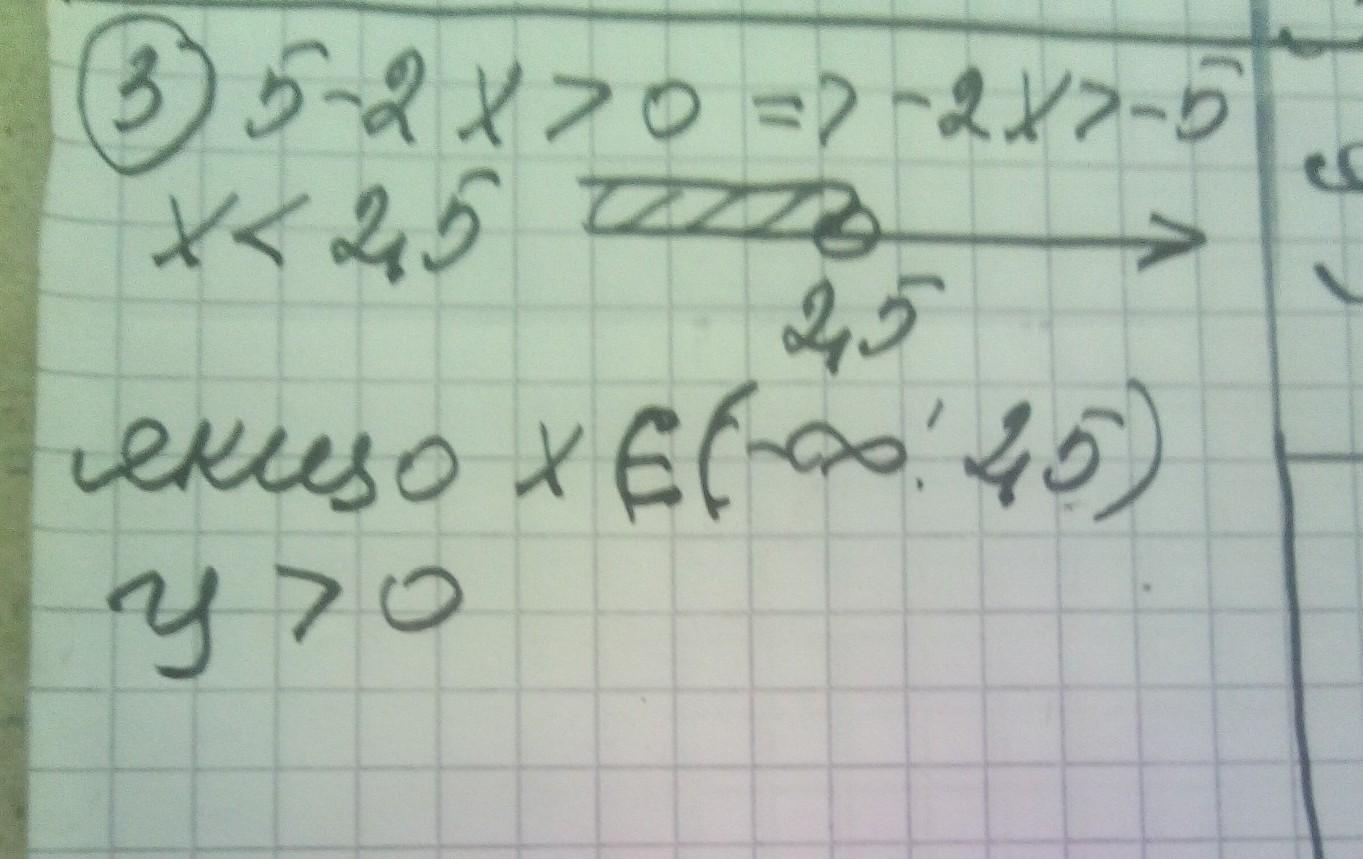 3 5-2x>0 => -2x>-5
x<2,5
2,5
якщо x∈(-∞; 2,5)
y>0